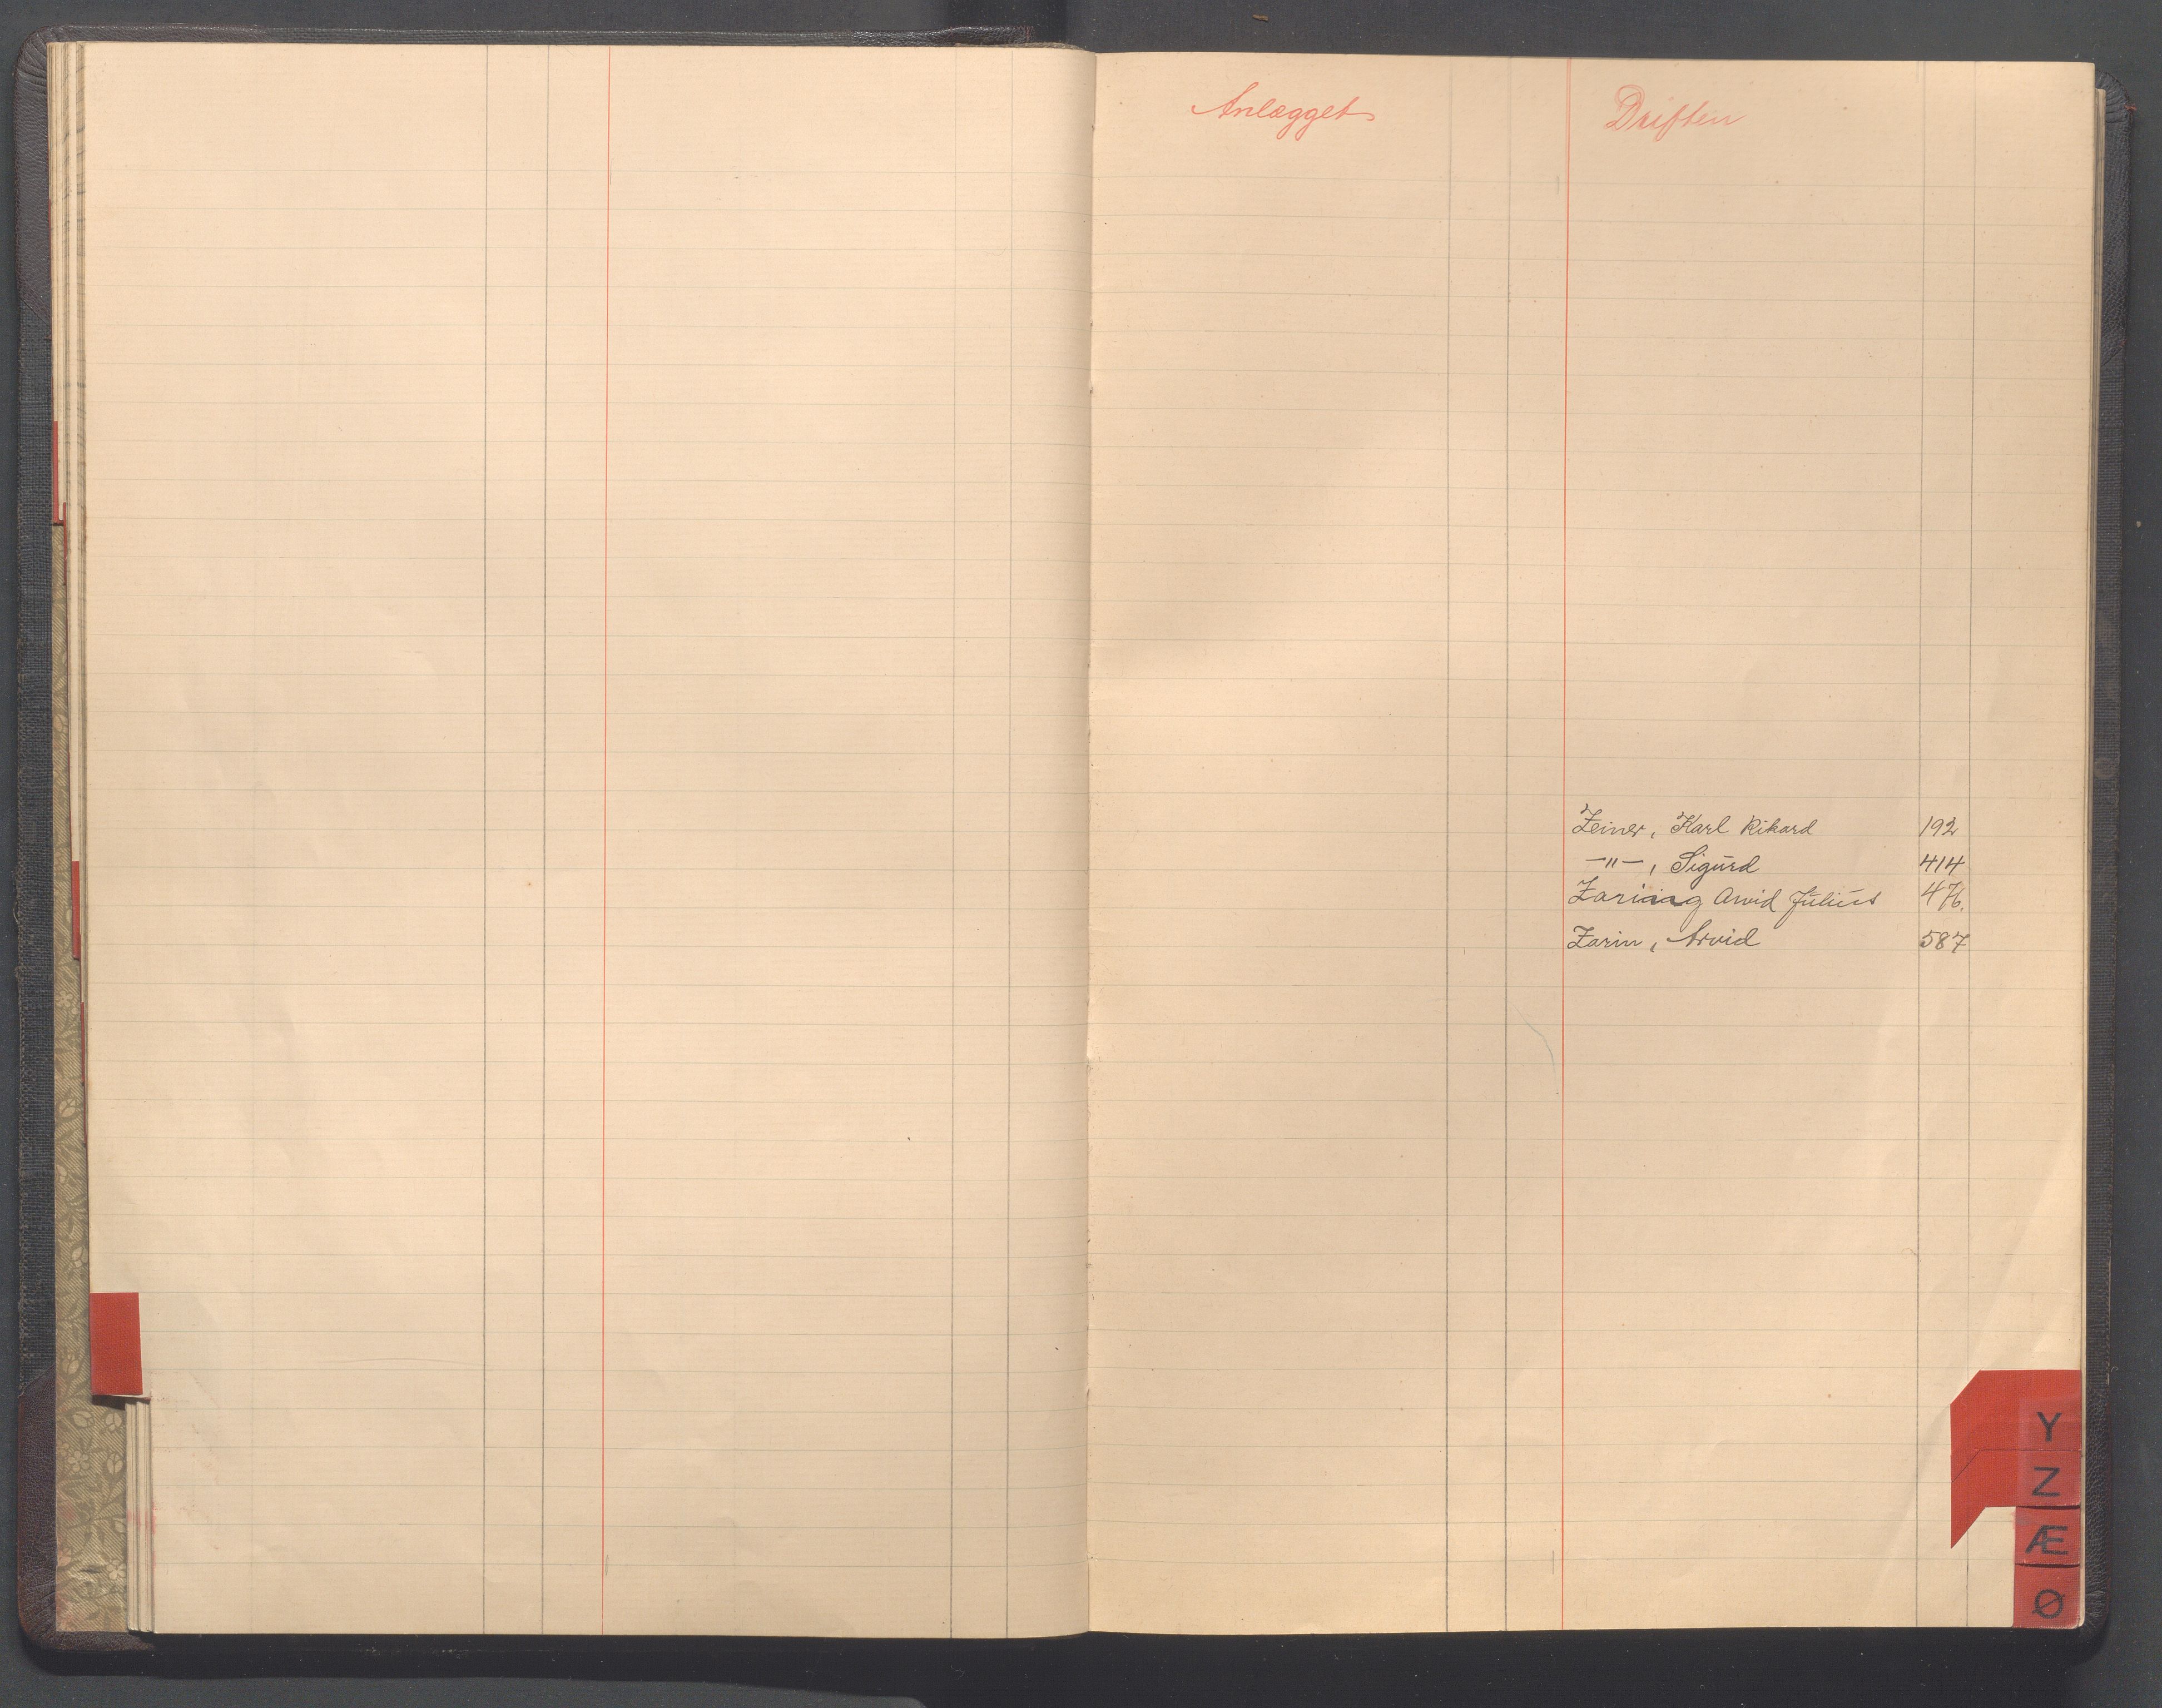 Anlægget
Driften
Zeiner, Karl Rikard 192
—"—, Sigurd 414
Zaring Arvid Julius 476.
Zarin, Arvid 587
Y
Z
Æ
Ø